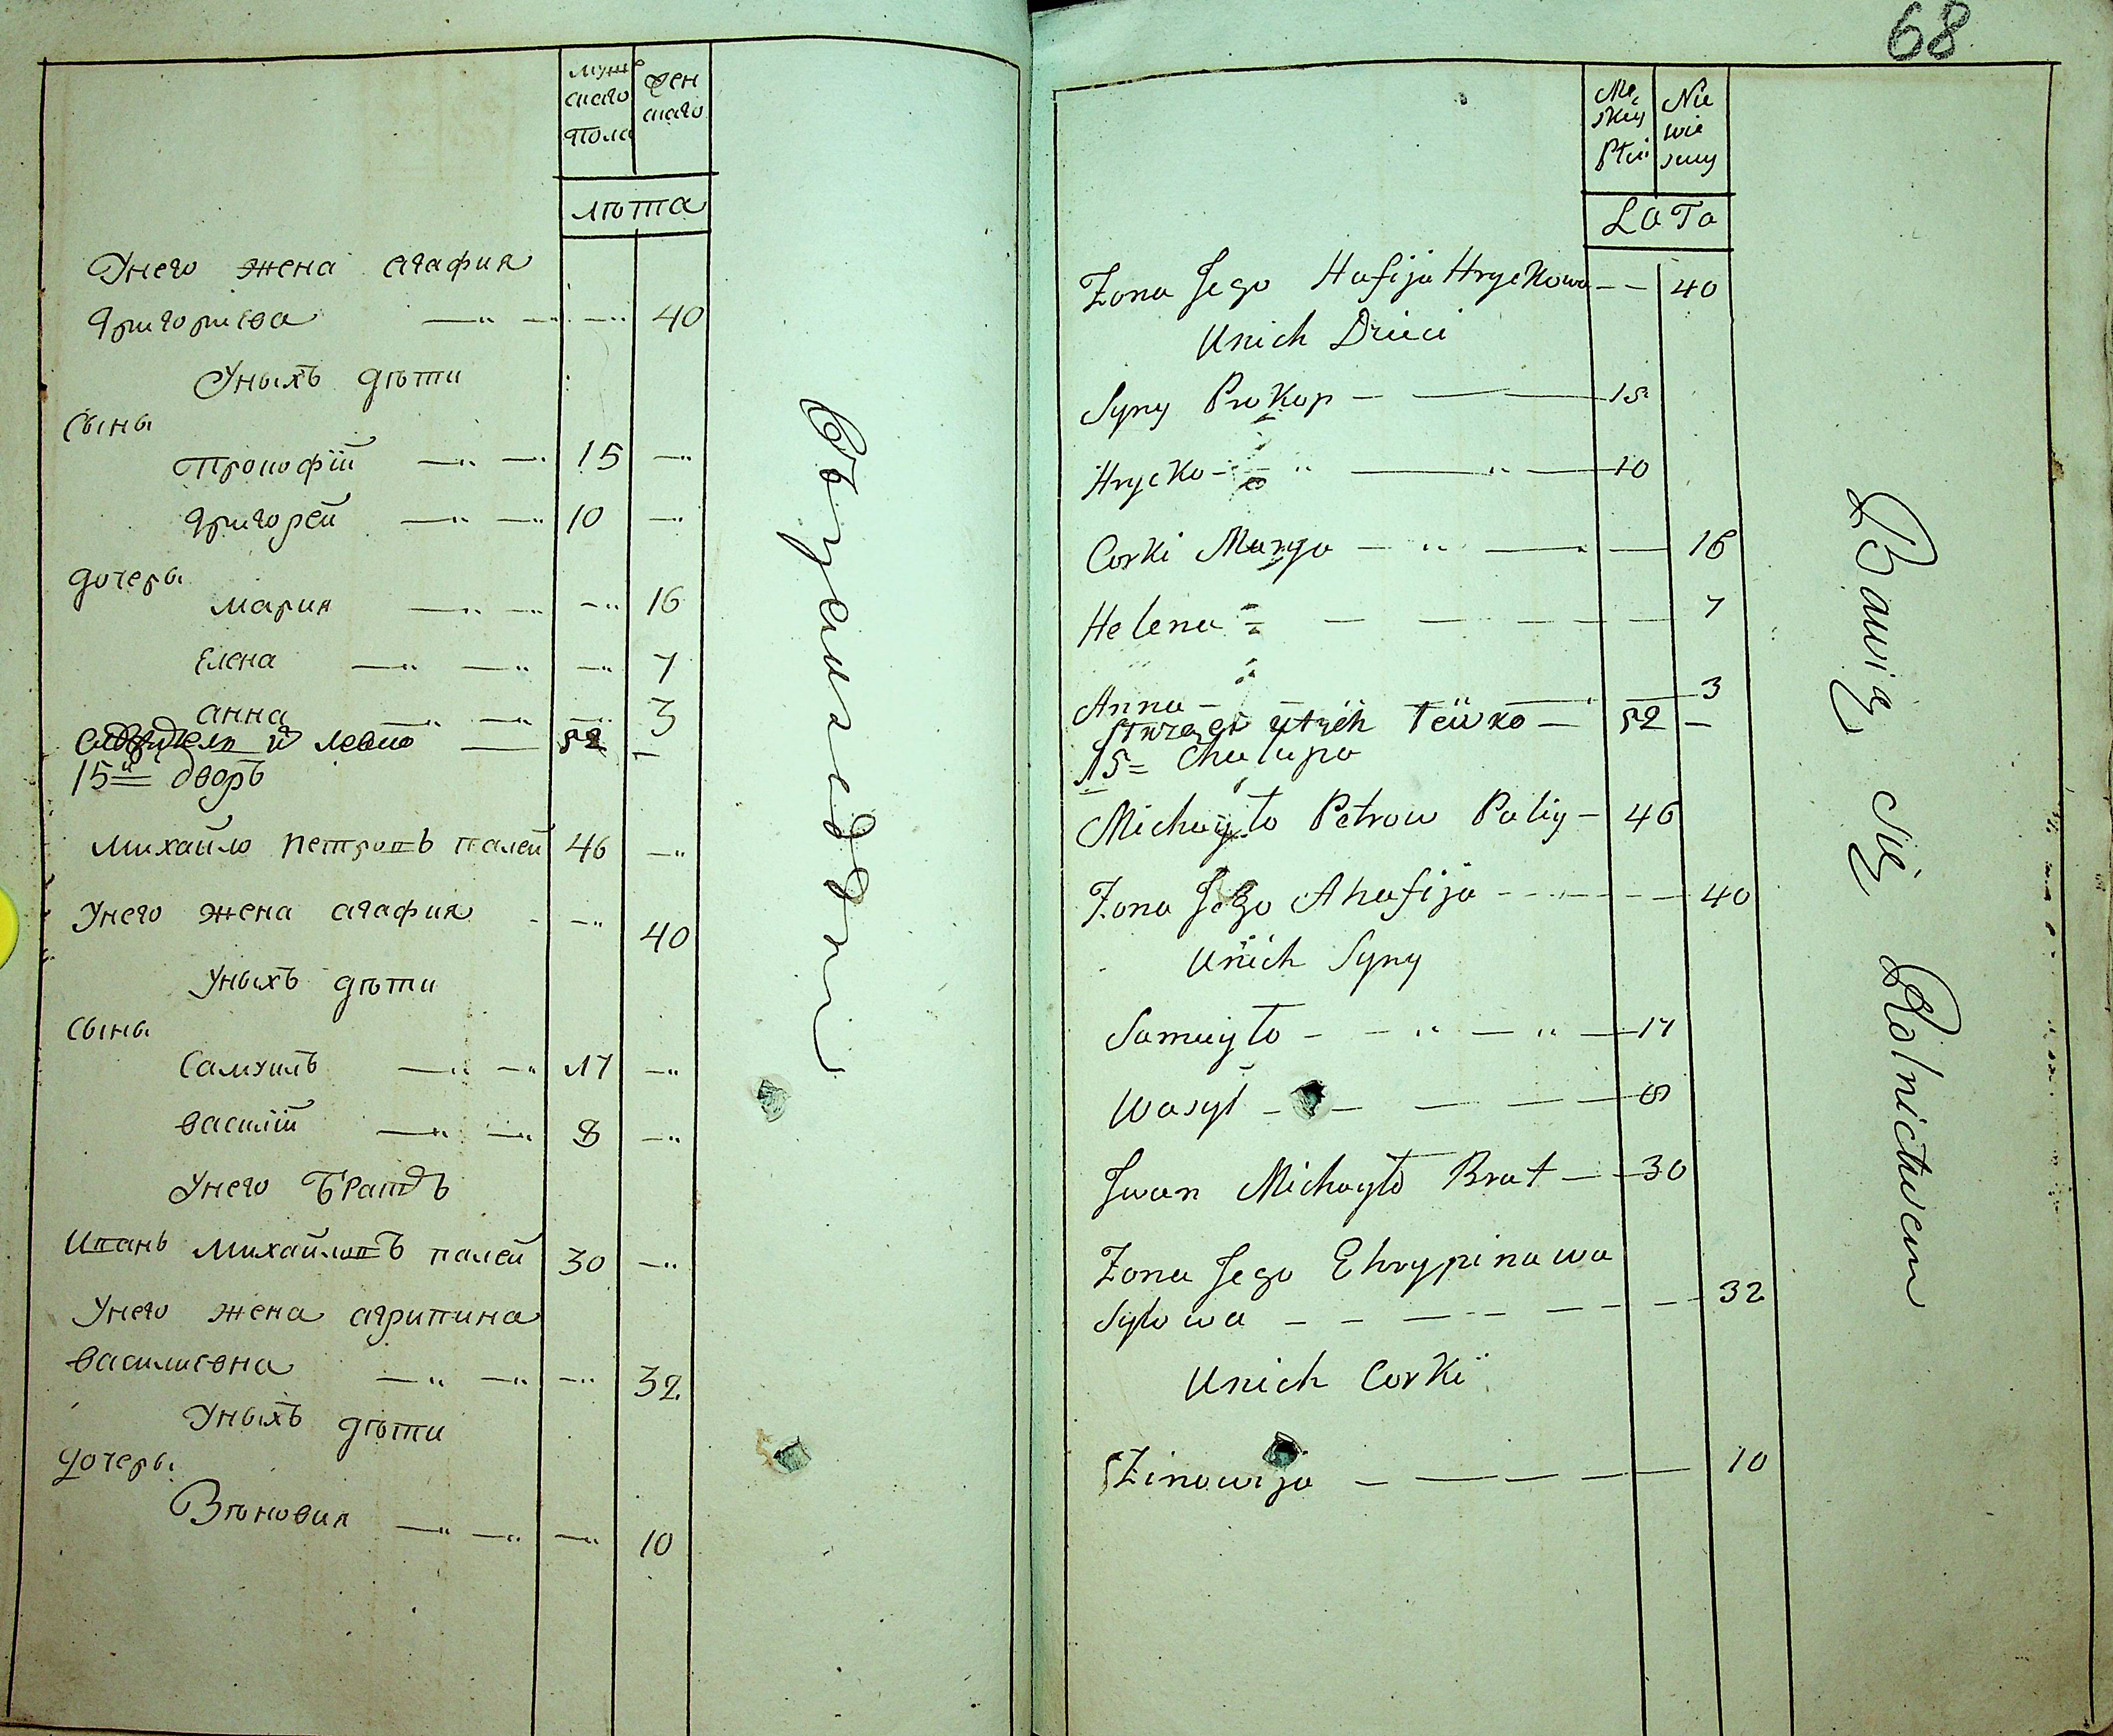 муж
скаго
пола
жен
скаго
лѣта
Унего жена агафия
григориева 40
Уныхъ дѣти
сынь
Прокофїй 15
григорей 10
дочерь
мария 16
Елена 7
анна 3
и левко 52 —
15й дворъ
михайло петровъ палей 46
Унего жена агафия 40
Уныхъ дѣти
сынь
самуилъ 17
василїй 8
Унего братъ
иванъ михайловъ палей 30
Унего жена агрипина
василиевна 32
Уныхъ дѣти
дочерь
Зѣновия 10
68
Mę
skiey
Płci
Nie
wie
sciey
LaTa
Zona Jego Hafija Hryckowa 40
Unich Dzieci
Syny Prokop 15
Hrycko 10
Corki Marya 16
Helena 7
Anna 3
52 —
15 Chałupa
Michayło Petrow Paliy 46
Zona Jego Ahafija 40
Unich Syny
Samuyło 17
Wasyl 8
Jwan Michayło Brat 30
Zona Jego Ehrypina wa
syłowa 32
Unich Corki
Zinowija 10
Bawią Się Rolnictwem